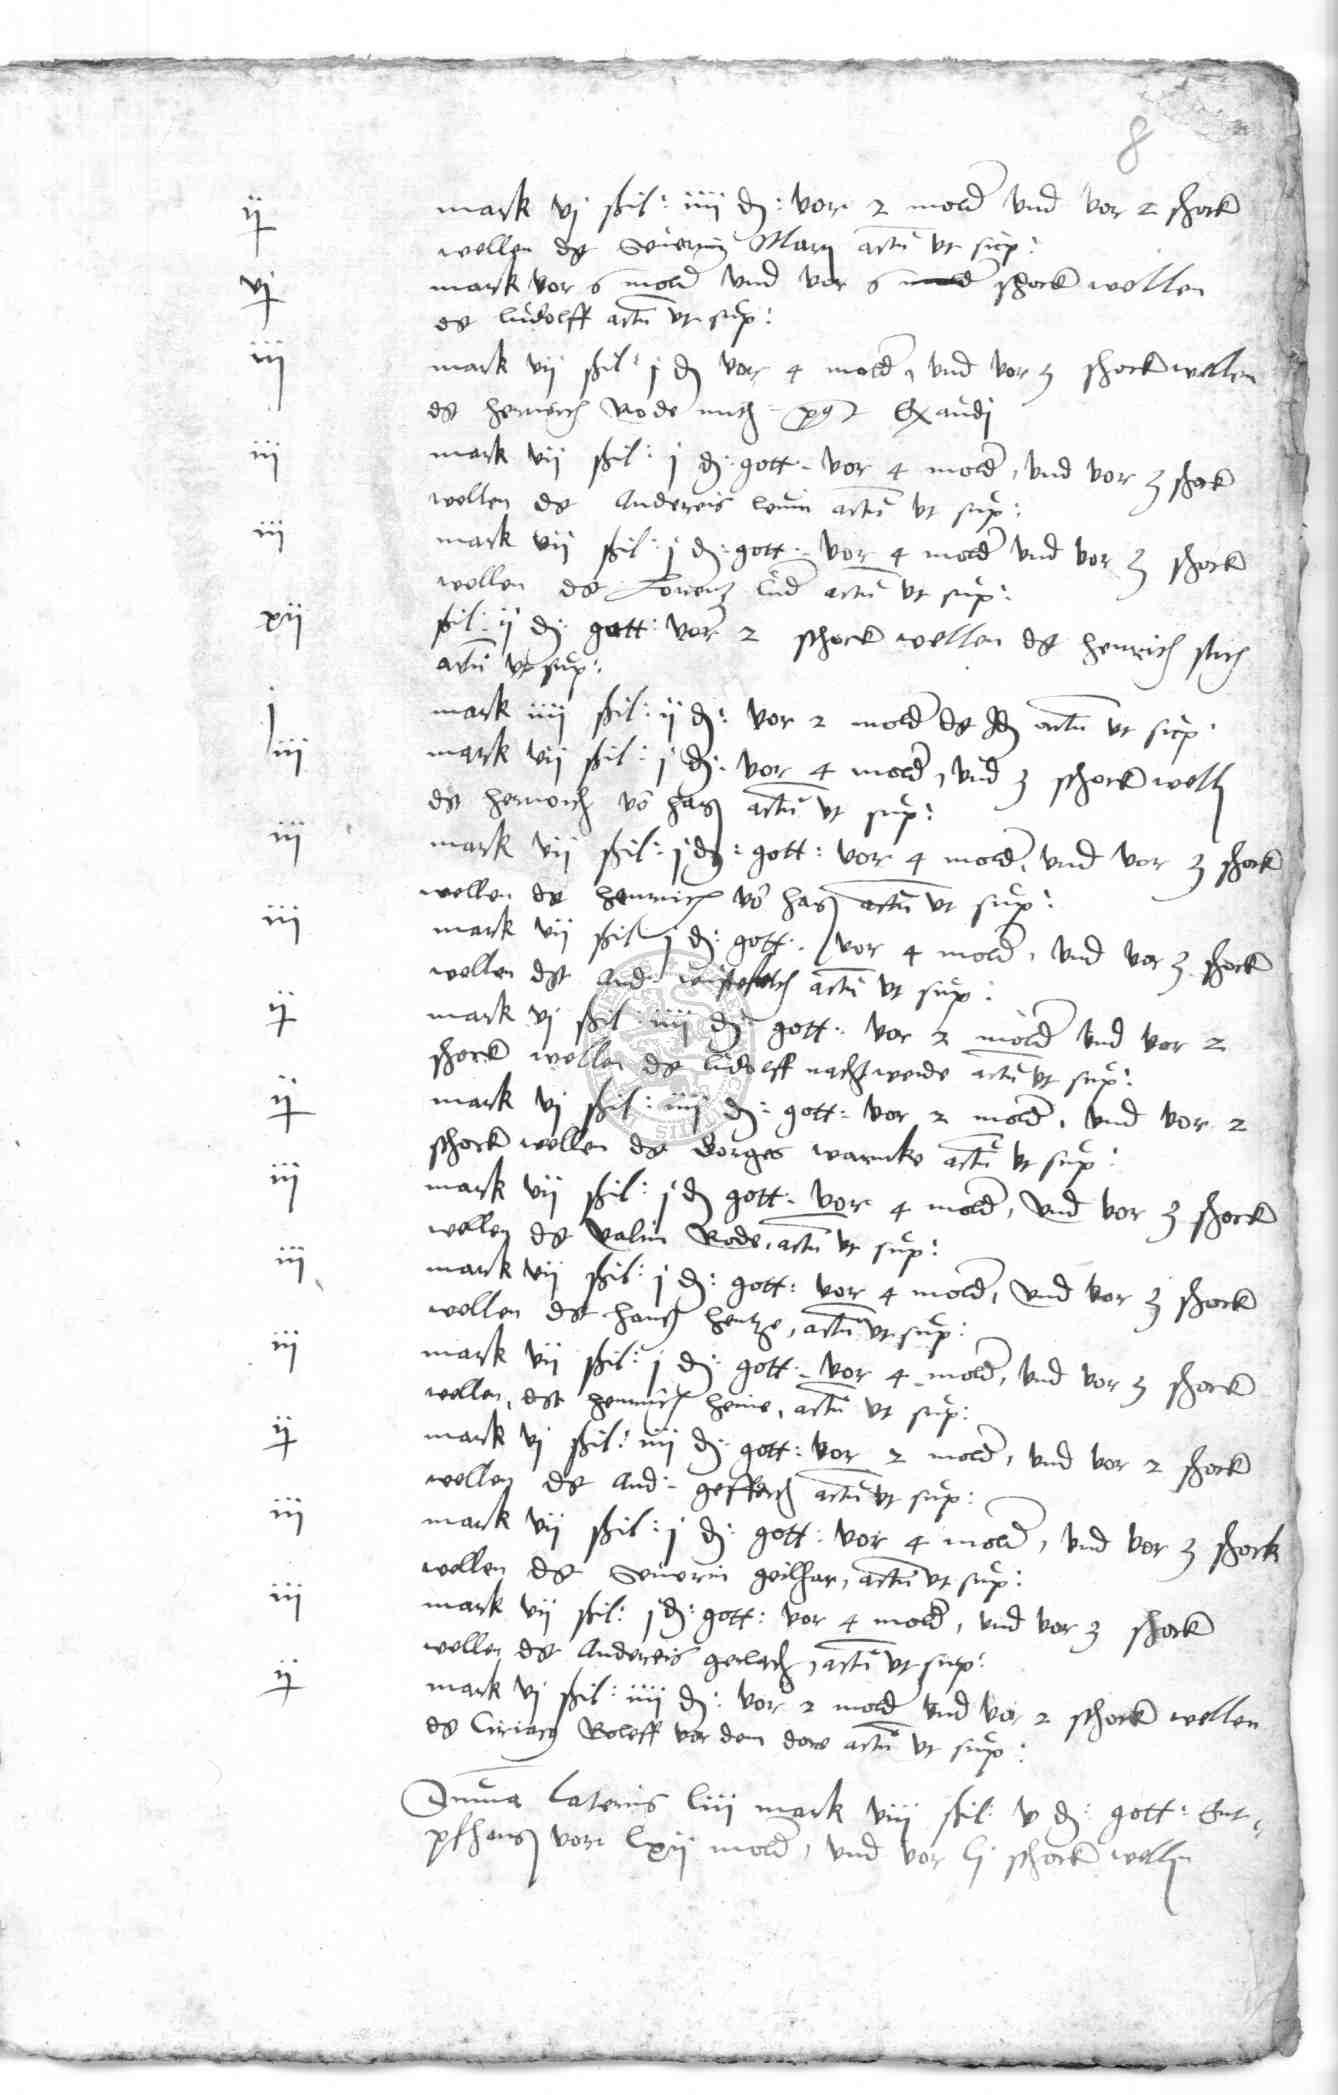 8
ij mark vj ßil: iiij d: vor 2 mold und vor 2 shock
wellen dt Severin Marx actu ut sup:
vj mark vor 6 mold und vor 6 shock wellen
dt ludolff actu ut sup:
iij mark vij ßil: j d vor 4 mold, und vor 3 shock wellen
dt henrich Rode Exaudj
iij mark vij ßil: j d: gott: vor 4 mold, und vor 3 shock
wellen dt Andereis levin actu ut sup:
iij mark vij ßil: j d: gott: vor 4 mold und vor 3 shock
wellen dt Lorentz lud actu ut sup:
xij ßil: ij d: gott: vor 2 schock wellen dt henrich
actu ut sup:
j mark iiij ßil: ij d: vor 2 mold dt actu ut sup:
iij mark vij ßil: j d: vor 4 mold, und 3 schock well
dt henrich vo hag actu ut sup:
iij mark vij ßil: j d: gott: vor 4 mold, und vor 3 shock
wellen dt henrich vo hag actu ut sup:
iij mark vij ßil j d: gott: vor 4 mold, und vor 3 shock
wellen dt And: actu ut sup:
ij mark vj ßil: iiij d: gott: vor 2 mold und vor 2
shock wellen dt ludolff nachtweide actu ut sup:
ij mark vj ßil: iiij d: gott: vor 2 mold, und vor 2
schock wellen dt dorges warnke actu ut sup:
iij mark vij ßil: j d gott: vor 4 mold, und vor 3 shock
wellen dt Valtin Rode, actu ut sup:
iij mark vij ßil: j d: gott: vor 4 mold, und vor 3 shock
wellen dt hans hentze, actu ut sup:
iij mark vij ßil: j d: gott: vor 4 mold, und vor 3 shock
wellen, dt henrich heine, actu ut sup:
ij mark vj ßil: iiij d: gott: vor 2 mold, und vor 2 shock
wellen dt And: actu ut sup:
iij mark vij ßil: j d: gott: vor 4 mold, und vor 3 shock
wellen dt Severin geilhar, actu ut sup:
iij mark vij ßil: j d: gott: vor 4 mold, und vor 3 shock
wellen dt Andereis gerlach, actu ut sup:
ij mark vj ßil: iiij d: vor 2 mold und vor 2 schock wellen
dt Ciriacg Roleff vor dem dore actu ut sup:
Suma Lateris liii mark viii ßil: v d: gott: Ent-
pfhang vor lxij mold, und vor lj schock wellen